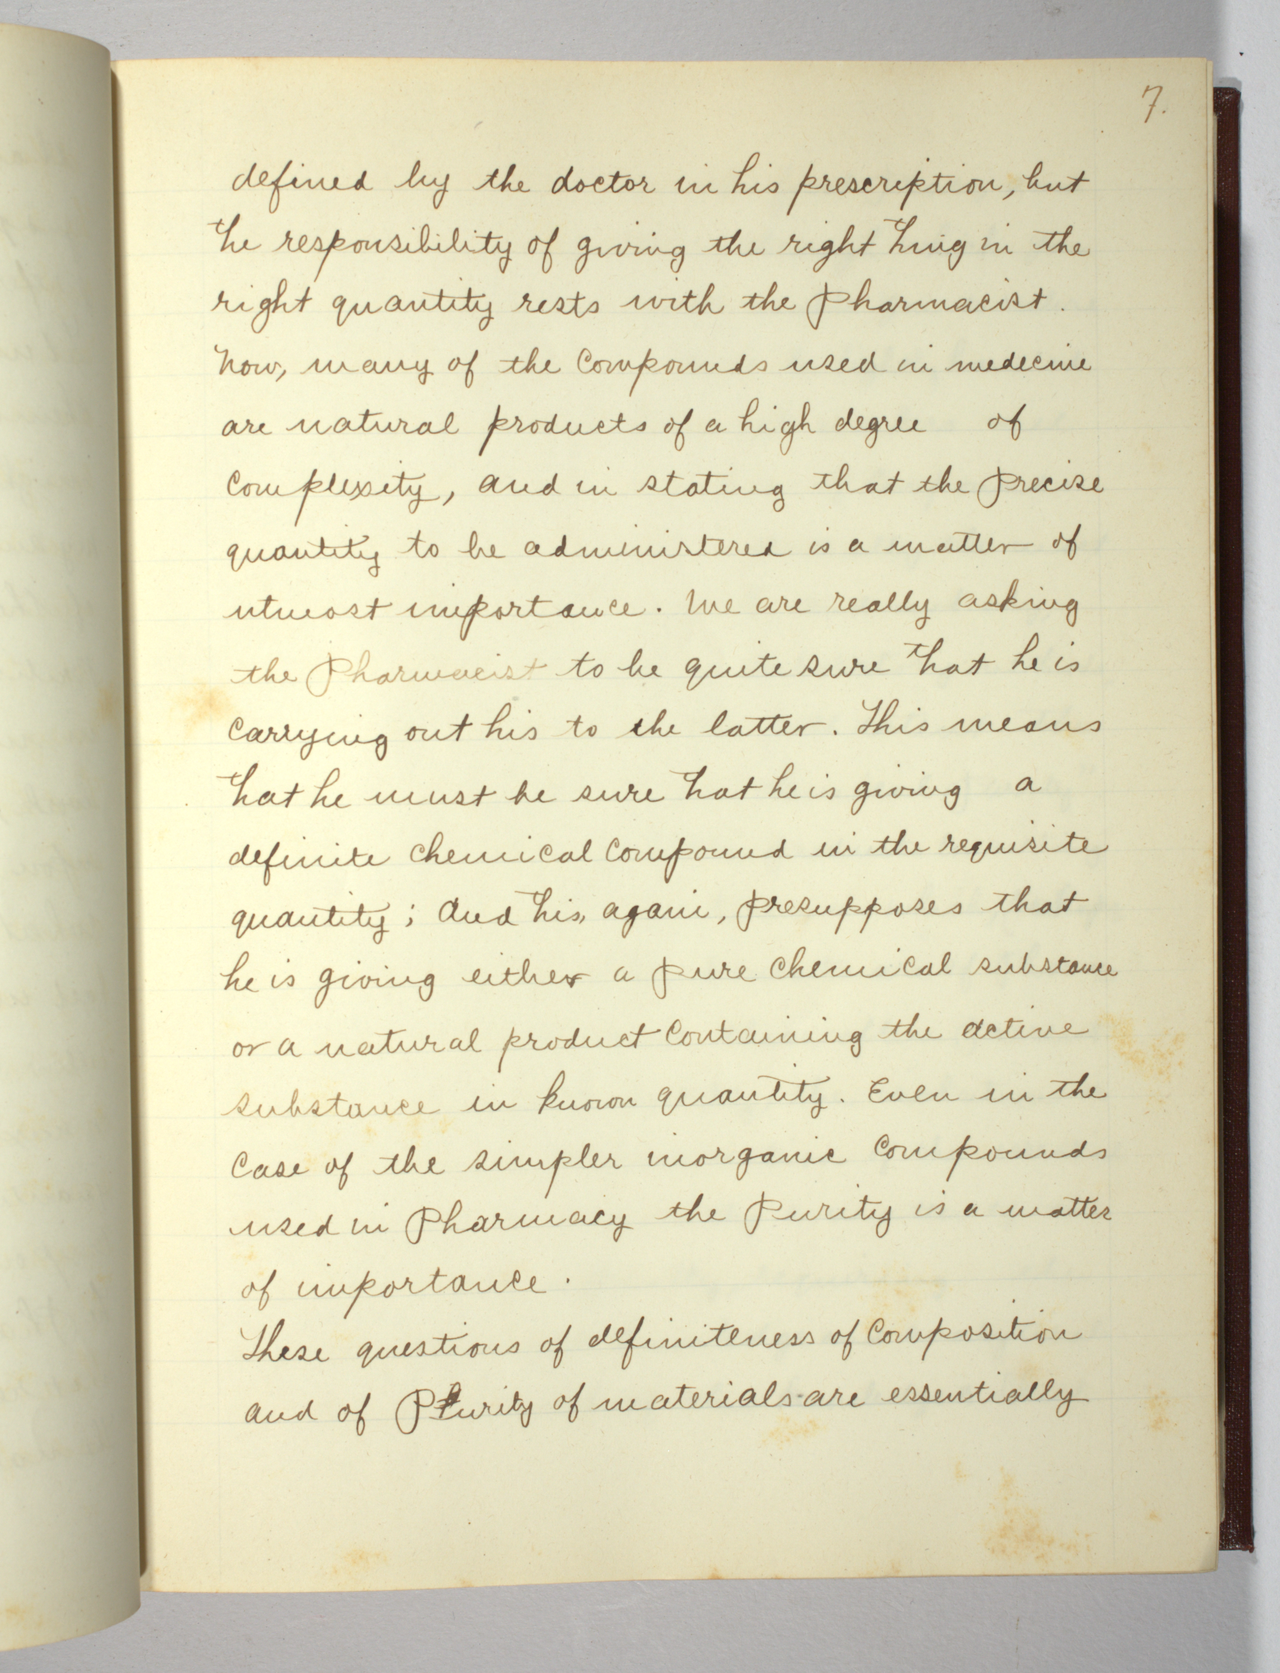 7.
defined by the doctor in his prescription, but
the responsibility of giving the right thing in the
right quantity rests with the Pharmacist.
Now, many of the Compounds used in medecine
are natural products of a high degree of
Complexity, and in stating that the Precise
quantity to be administered is a matter of
utmost importance. We are really asking
the Pharmacist to be quite sure that he is
Carrying out this to the latter. This means
that he must be sure that he is giving a
definite Chemical Compound in the requisite
quantity; And this, again, presupposes that
he is giving either a pure Chemical substance
or a natural product Containing the active
substance in known quantity. Even in the
Case of the simpler inorganic Compounds
used in Pharmacy the Purity is a matter
of importance.
These questions of definiteness of Composition
and of Purity of materials are essentially